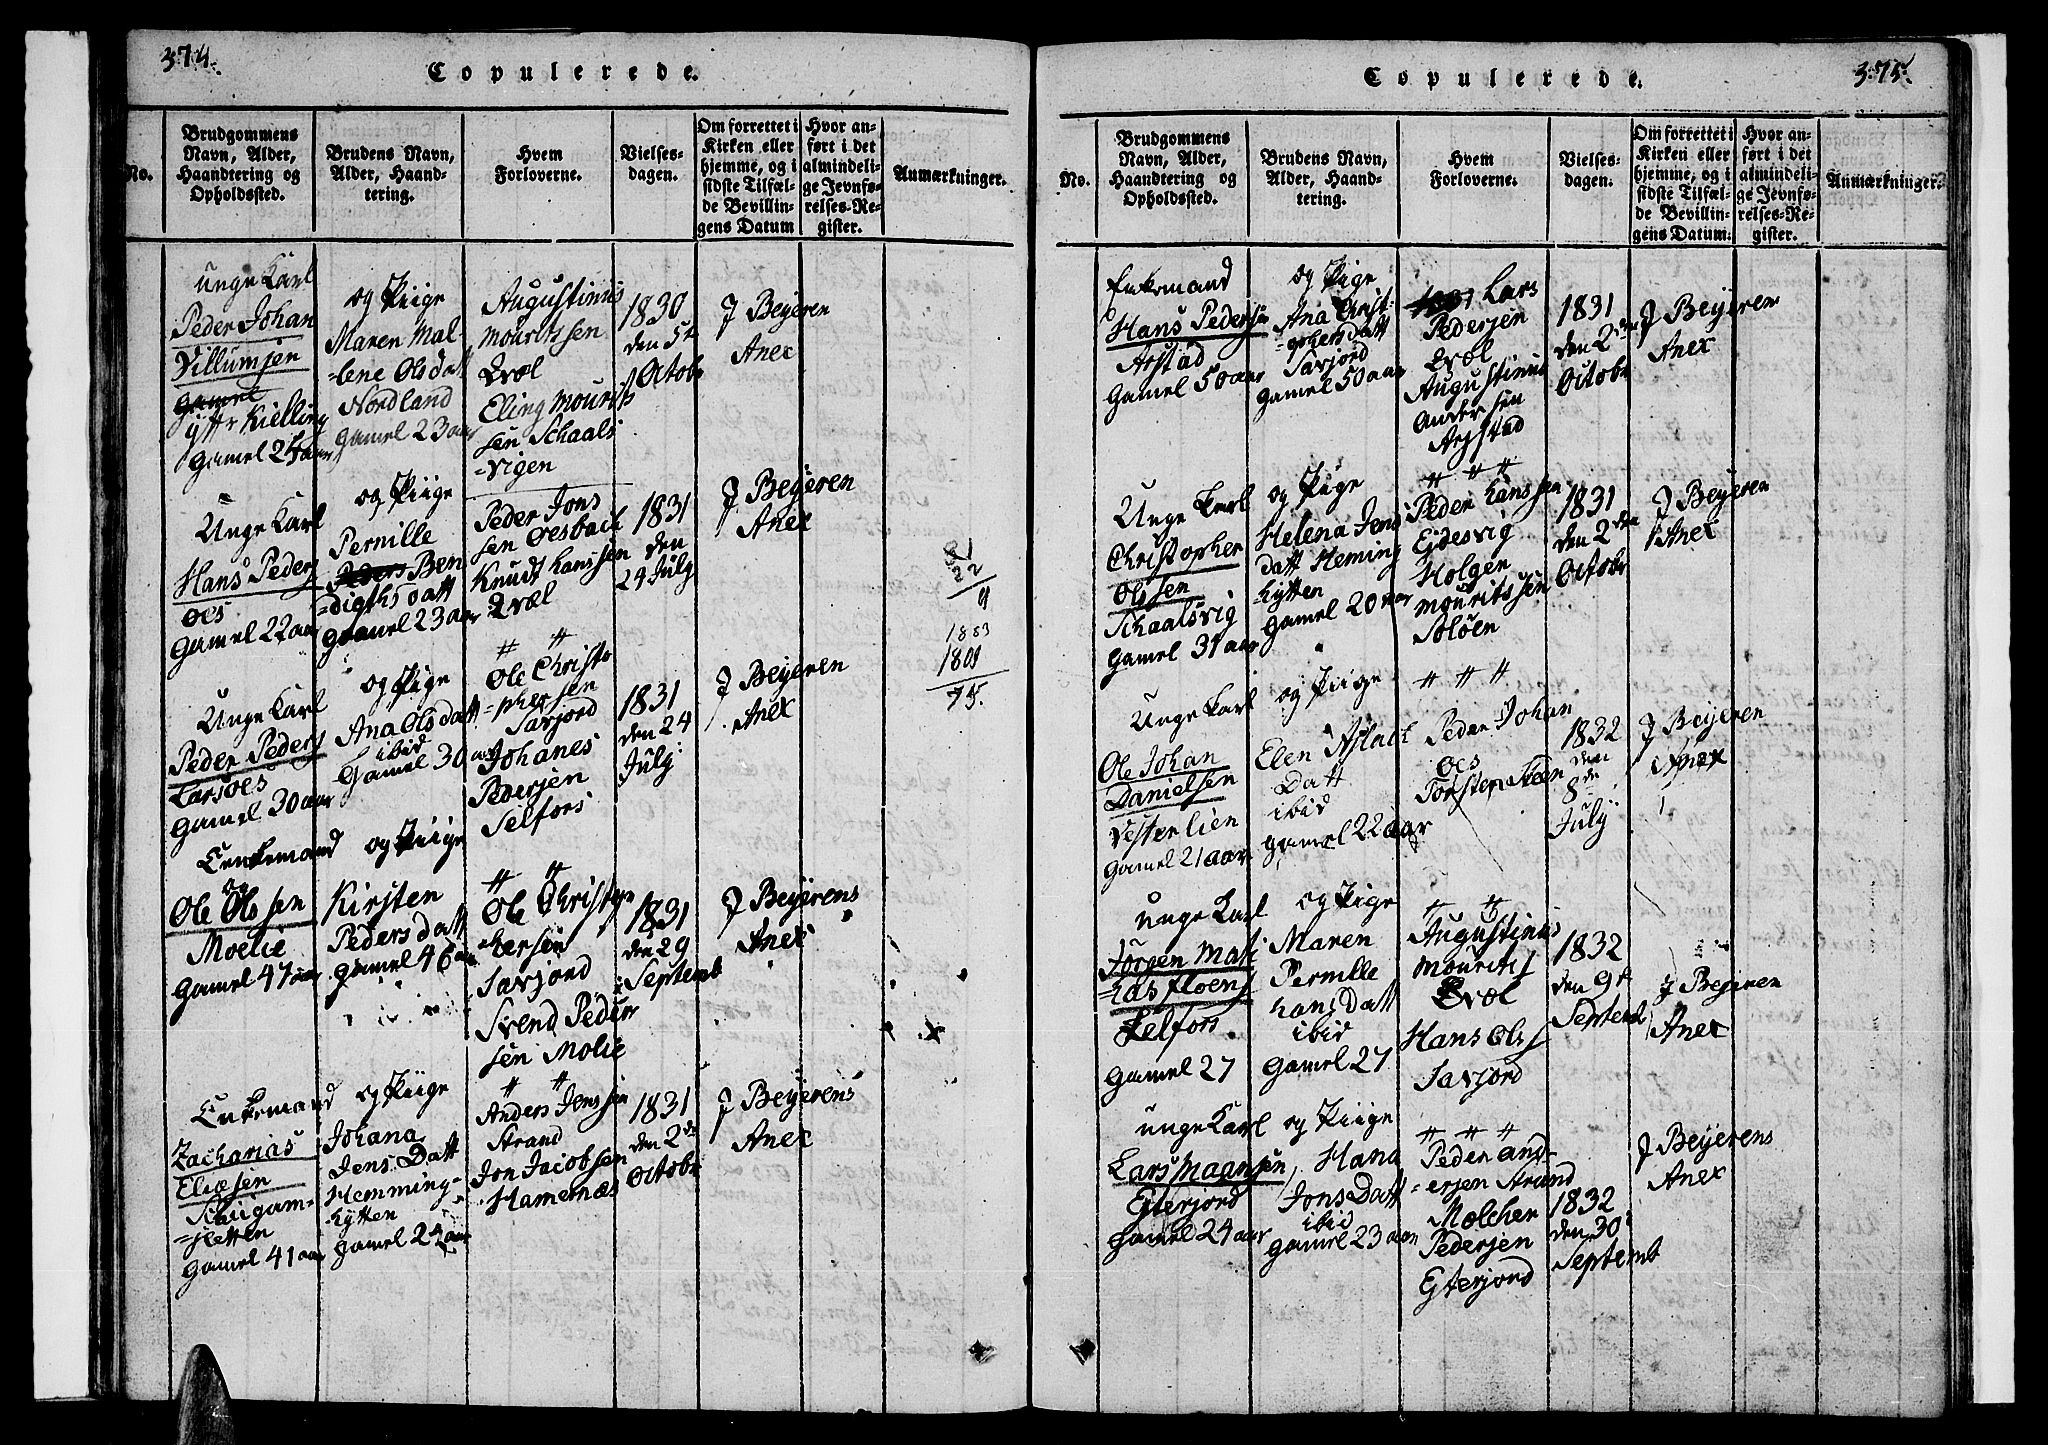 374.
Copulerede.
No.
Brudgommens
Navn, Alder,
Haandtering og
Opholdssted.
Brudens Navn,
Alder, Haand-
tering.
Hvem
Forloverne.
Vielses-
dagen.
Om forrettet i
Kirken eller
hjemme, og i
sidste Tilfæl-
de Bevillin-
gens Datum
Hvor an-
ført i det
almindeli-
ge Jevnfø-
relses-Re-
gister.
Anmærkninger.
unge Karl
Peder Johan
Villumsen
Kielling
Gamel 24 aar
og Piige
Maren Mal-
lene Olsdatt
Nordland
Gamel 23 aar
Augustinus
Mouritssen
Evæl
Eling Mourits
sen Schaals
-vigen
1830
den 5te
Octobr
J Beyeren
Anex
Unge Karl
Hans Peders
Oes
Gamel 22 aar
og Piige
Pernille
Ben
-digthsdatt
Gamel 23 aar
Peder Jons
sen Oesbach
Knudt Hanssen
Evæl
1831
den
24 July
J Beyeren
Anex
1883
1809
75.
Unge Karl
Peder Peders
Larsoes
Gamel 30 aar
og Piige
Ana Olsdatt
ibid
Gamel 30 aar
Ole Christo
-phersen
Saxjord
Johanes
Pedersen
Selfors
1831
den 24
July
J Beyeren
Anex
Enkemand
Ole Olssen
Moelie
Gamel 47 aar
og Piige
Kirsten
Pedersdatt
Gamel 46 aar
Ole Christop
-hersen
Saxjord
Svend Peder
sen Molie
1831
den 29
Septemb
J Beyerens
Anex
Enkemand
Zacharias
Eliæsen
Gamel 41 aar
og Piige
Johana
Jens Datt
Hemming-
-hytten
Gamel 24 aar
Anders Jenssen
Strand
Jon Jacobsen
Hamernæs
1831
den 2de
Octobr
J Beyerens
Anex
375.
Copulerede.
No.
Brudgommens
Navn, Alder,
Haandtering og
Opholdssted.
Brudens Navn,
Alder, Haand-
tering.
Hvem
Forloverne.
Vielses-
dagen.
Om forrettet i
Kirken eller
hjemme, og i
sidste Tilfæl-
de Bevillin-
gens Datum.
Hvor an-
ført i det
almindeli-
ge Jevnfø-
relses-Re-
gister.
Anmærkninger.
Enkemand
Hans Pedersen
Arstad
Gamel 50 aar
og Piige
Ana Christ-
-ophersdatt
Saxjord
Gamel 50 aar
Lars
Pedersen
Evæl
Augustinus
Andersen
Arstad
1831
den 2den
Octobr
J Beyeren
Anex
Unge Karl
Christopher
Olssen
Schaalsvig
Gamel 31 aar
og Piige
Helena Jens
datt Heming
-hytten
Gamel 20 aar
Peder Hanssen
Ejdesvig
Holgen
Mouritssen
Soløen
1831
den 2den
Octobr
J Beyeren
Anex
Unge Karl
Ole Johan
Danielsen
Vesterlien
Gamel 21 aar
og Piige
Elen
Datt
ibid
Gamel 22 aar
Peder Johan
Oes
Torsten Steen
1832
den
8de
July
J Beyeren
Anex
unge Karl
Jörgen Mat
Selfors
Gamel 27
og Piige
Maren
Pernille
Hans Datt
ibid
Gamel 27
Augustinus
Mourits
Evæl
Hans Ols
Saxjord
1832
den 9de
Septemb
J Bejeren
Anex
unge Karl
Lars Maansen
Ejterjord
Gamel 24 aar
og Piige
Hana
Jons Datt
ibid
Gamel 23 aar
Peder And-
-ersen Strand
Molcher
Pedersen
Ejterjord
1832
den 30
Septemb
J Beyerens
Anex